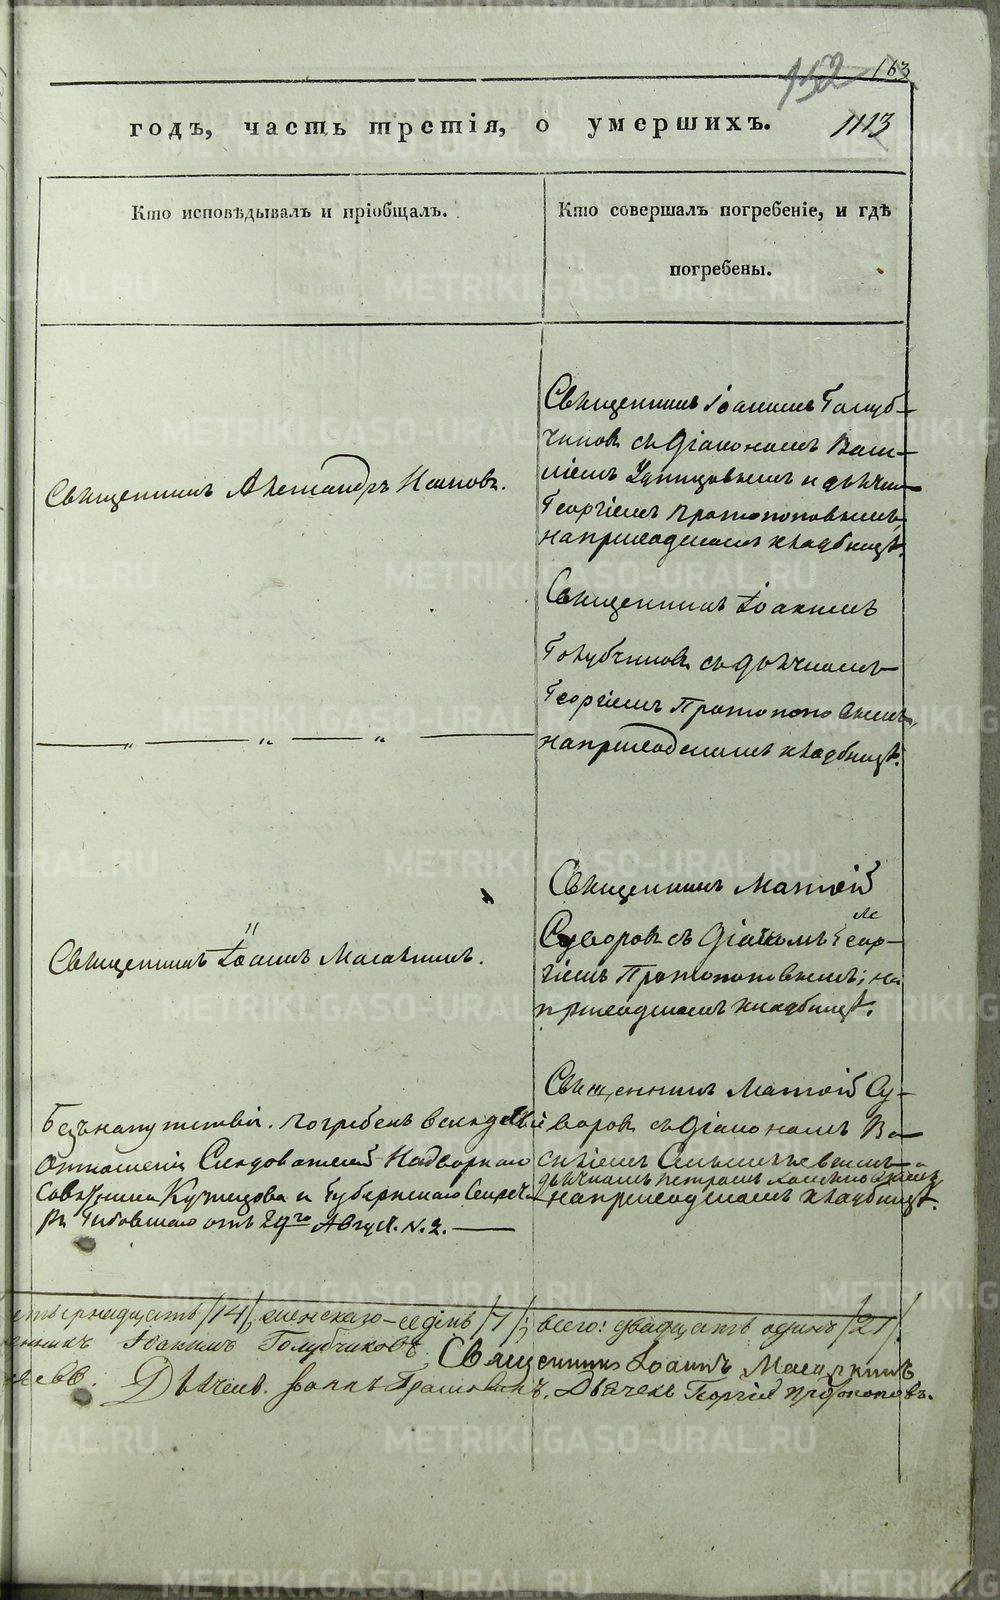 152 163
годъ, часть третія, о умершихъ. 1113
Кто исповѣдывалъ и пріобщалъ.
Кто совершалъ погребеніе, и гдѣ
погребены.
Священникъ Александръ
Священникъ Іоакимъ Голуб-
чиковъ съ Діакономъ Васи-
ліемъ и дьячкомъ
Георгіемъ Протопоповымъ,
на приходскомъ кладбищѣ.
Священникъ Іоакимъ
Голубчиковъ съ дьячкомъ
Георгіемъ Протопоповымъ,
на приходскомъ кладбищѣ.
— „ — „ — „ —
Священникъ Іоаннъ Масалкинъ.
Священникъ Матѳій
Суворовъ съ Геор-
гіемъ Протопоповымъ; на
приходскомъ кладбищѣ.
Безъ напутствія. Погребенъ вслѣдствіе
отношенія Слѣдователей Надворнаго
Совѣтника Кузнецова и Губернскаго Секрета-
ря отъ 29го Август. N. 2. —
Священникъ Матѳій Су-
воровъ съ Діакономъ Ва-
силіемъ
дьячкомъ Петромъ
на приходскомъ кладбищѣ.
етырнадцать /14/, женскаго – седмь /7/; всего: двадцать одинъ /21/.
енникъ Іоакимъ Голубчиковъ; Священникъ Іоаннъ Масалкинъ
Дьячекъ Дьячекъ Георгій Протопоповъ.
METRIKI.GASO-URAL.RU